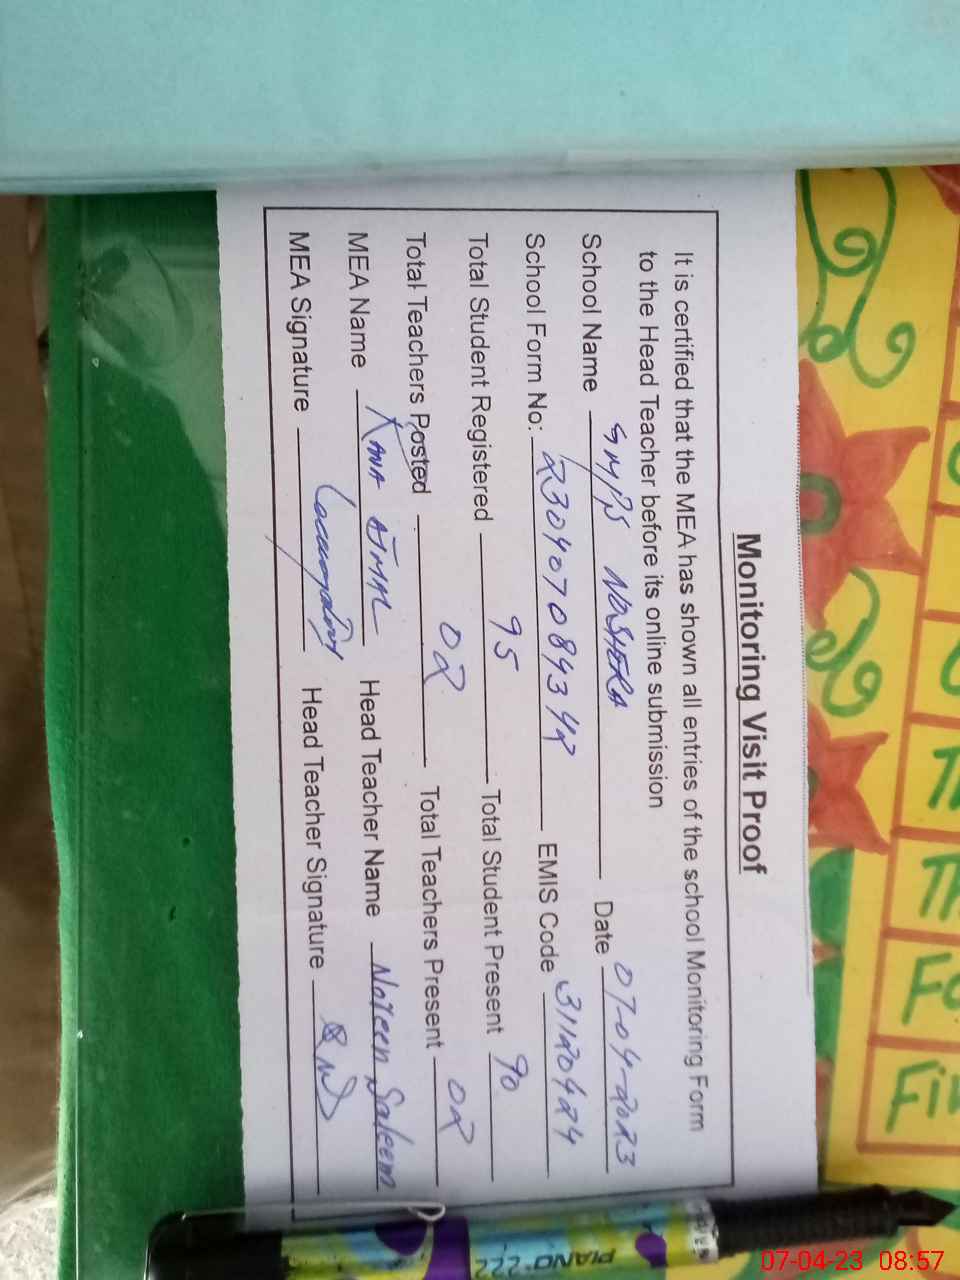 Monitoring Visit Proof
It is certified that the MEA has shown all entries of the school Monitoring Form
to the Head Teacher before its online submission
School Name GMPS NOSHERA Date 07-04-2023
School Form No: 230407089342 EMIS Code 31120424
Total Student Registered 95 Total Student Present 90
Total Teachers Posted 02 Total Teachers Present 02
MEA Name RANA AJMAL Head Teacher Name Noreen Saleem
MEA Signature Head Teacher Signature
PIANO-222
07-04-23 08:57